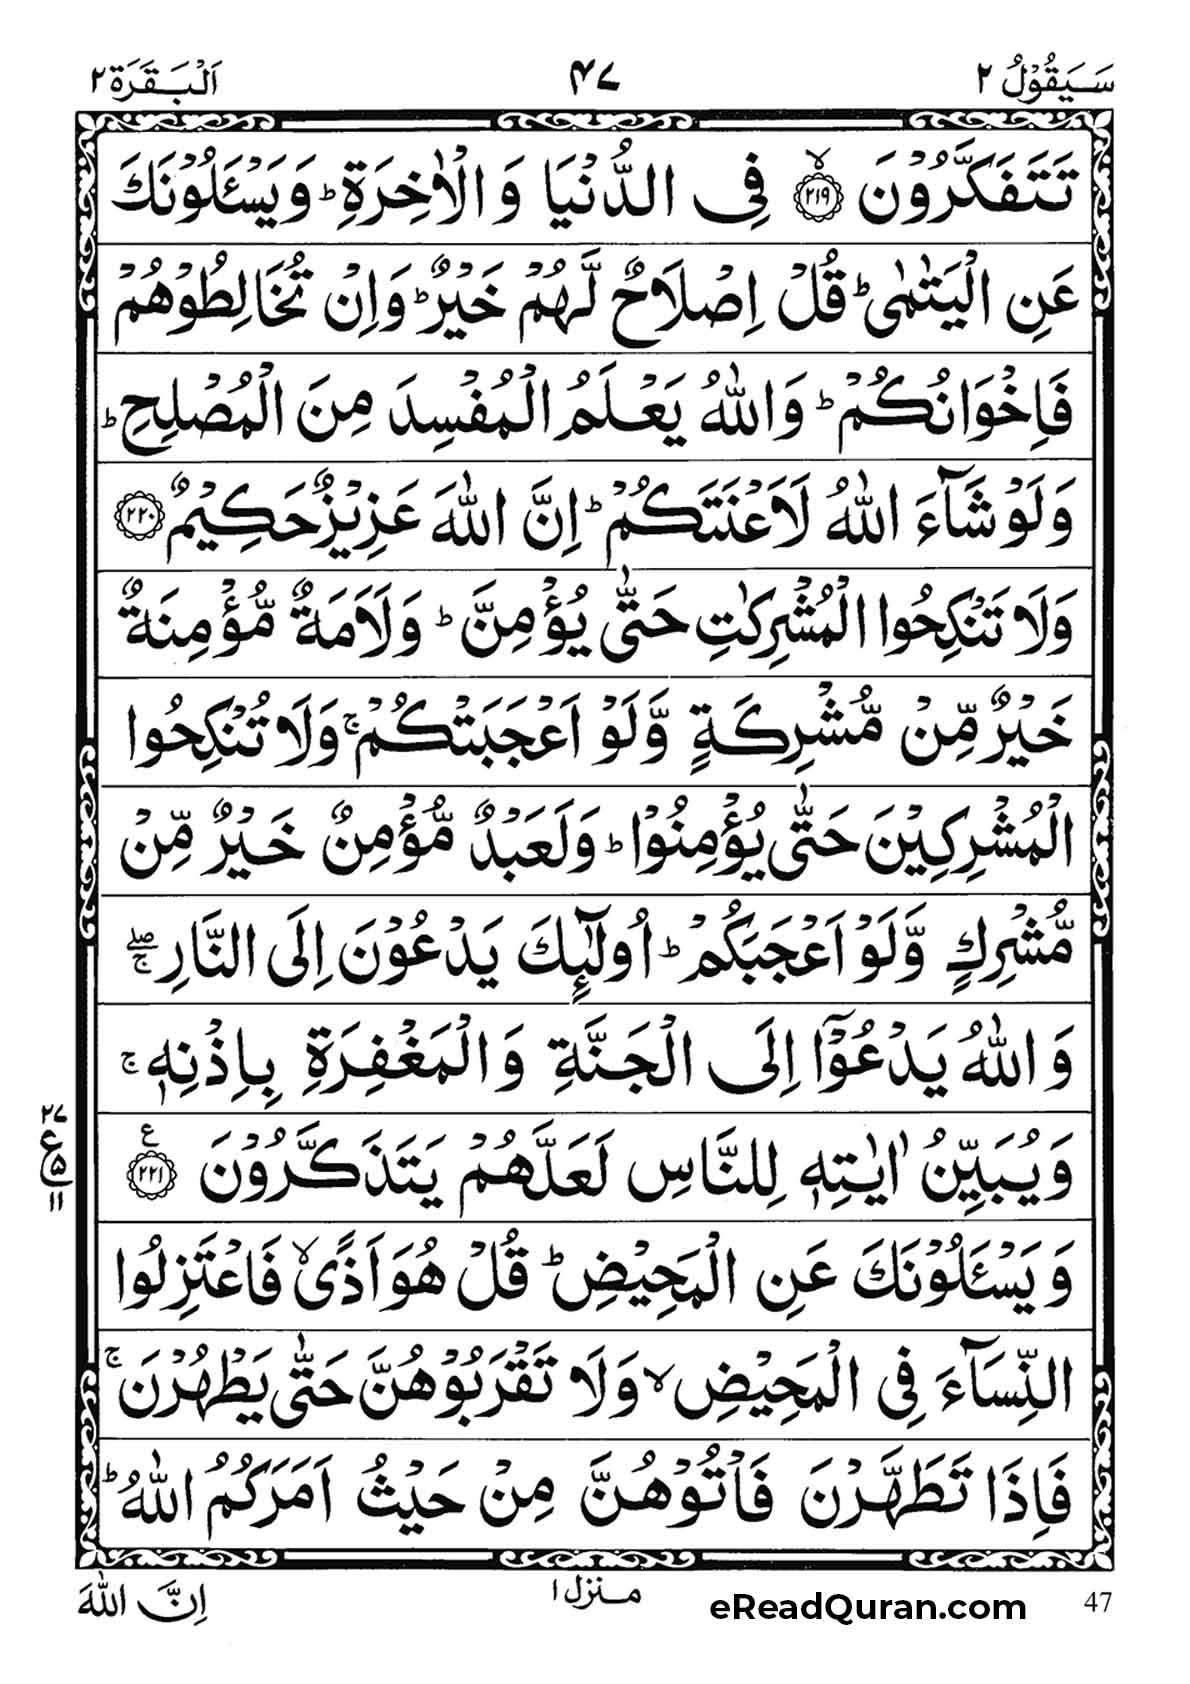 سَيَقُوْلُ ٢ ٤٧ اَلْبَقَرَة ٢
تَتَفَكَّرُوْنَ ﴿٢١٩﴾ۙ فِى الدُّنْيَا وَ الْاٰخِرَةِؕ وَ يَسْـَٔلُوْنَكَ
عَنِ الْيَتٰمٰىؕ قُلْ اِصْلَاحٌ لَّهُمْ خَيْرٌؕ وَ اِنْ تُخَالِطُوْهُمْ
فَاِخْوَانُكُمْؕ وَ اللّٰهُ يَعْلَمُ الْمُفْسِدَ مِنَ الْمُصْلِحِؕ
وَ لَوْ شَآءَ اللّٰهُ لَاَعْنَتَكُمْؕ اِنَّ اللّٰهَ عَزِيْزٌ حَكِيْمٌ ﴿٢٢٠﴾
وَ لَا تَنْكِحُوا الْمُشْرِكٰتِ حَتّٰى يُؤْمِنَّؕ وَ لَاَمَةٌ مُّؤْمِنَةٌ
خَيْرٌ مِّنْ مُّشْرِكَةٍ وَّ لَوْ اَعْجَبَتْكُمْۚ وَ لَا تُنْكِحُوا
الْمُشْرِكِيْنَ حَتّٰى يُؤْمِنُوْاؕ وَ لَعَبْدٌ مُّؤْمِنٌ خَيْرٌ مِّنْ
مُّشْرِكٍ وَّ لَوْ اَعْجَبَكُمْؕ اُولٰٓئِكَ يَدْعُوْنَ اِلَى النَّارِ ۖۚ
وَ اللّٰهُ يَدْعُوْۤا اِلَى الْجَنَّةِ وَ الْمَغْفِرَةِ بِاِذْنِهٖۚ
وَ يُبَيِّنُ اٰيٰتِهٖ لِلنَّاسِ لَعَلَّهُمْ يَتَذَكَّرُوْنَ ﴿٢٢١﴾ ع
٢٧
ع ٥
١١
وَ يَسْـَٔلُوْنَكَ عَنِ الْمَحِيْضِؕ قُلْ هُوَ اَذًىۙ فَاعْتَزِلُوا
النِّسَآءَ فِى الْمَحِيْضِۙ وَ لَا تَقْرَبُوْهُنَّ حَتّٰى يَطْهُرْنَۚ
فَاِذَا تَطَهَّرْنَ فَاْتُوْهُنَّ مِنْ حَيْثُ اَمَرَكُمُ اللّٰهُؕ
منزل ١ اِنَّ اللّٰهَ
eReadQuran.com 47